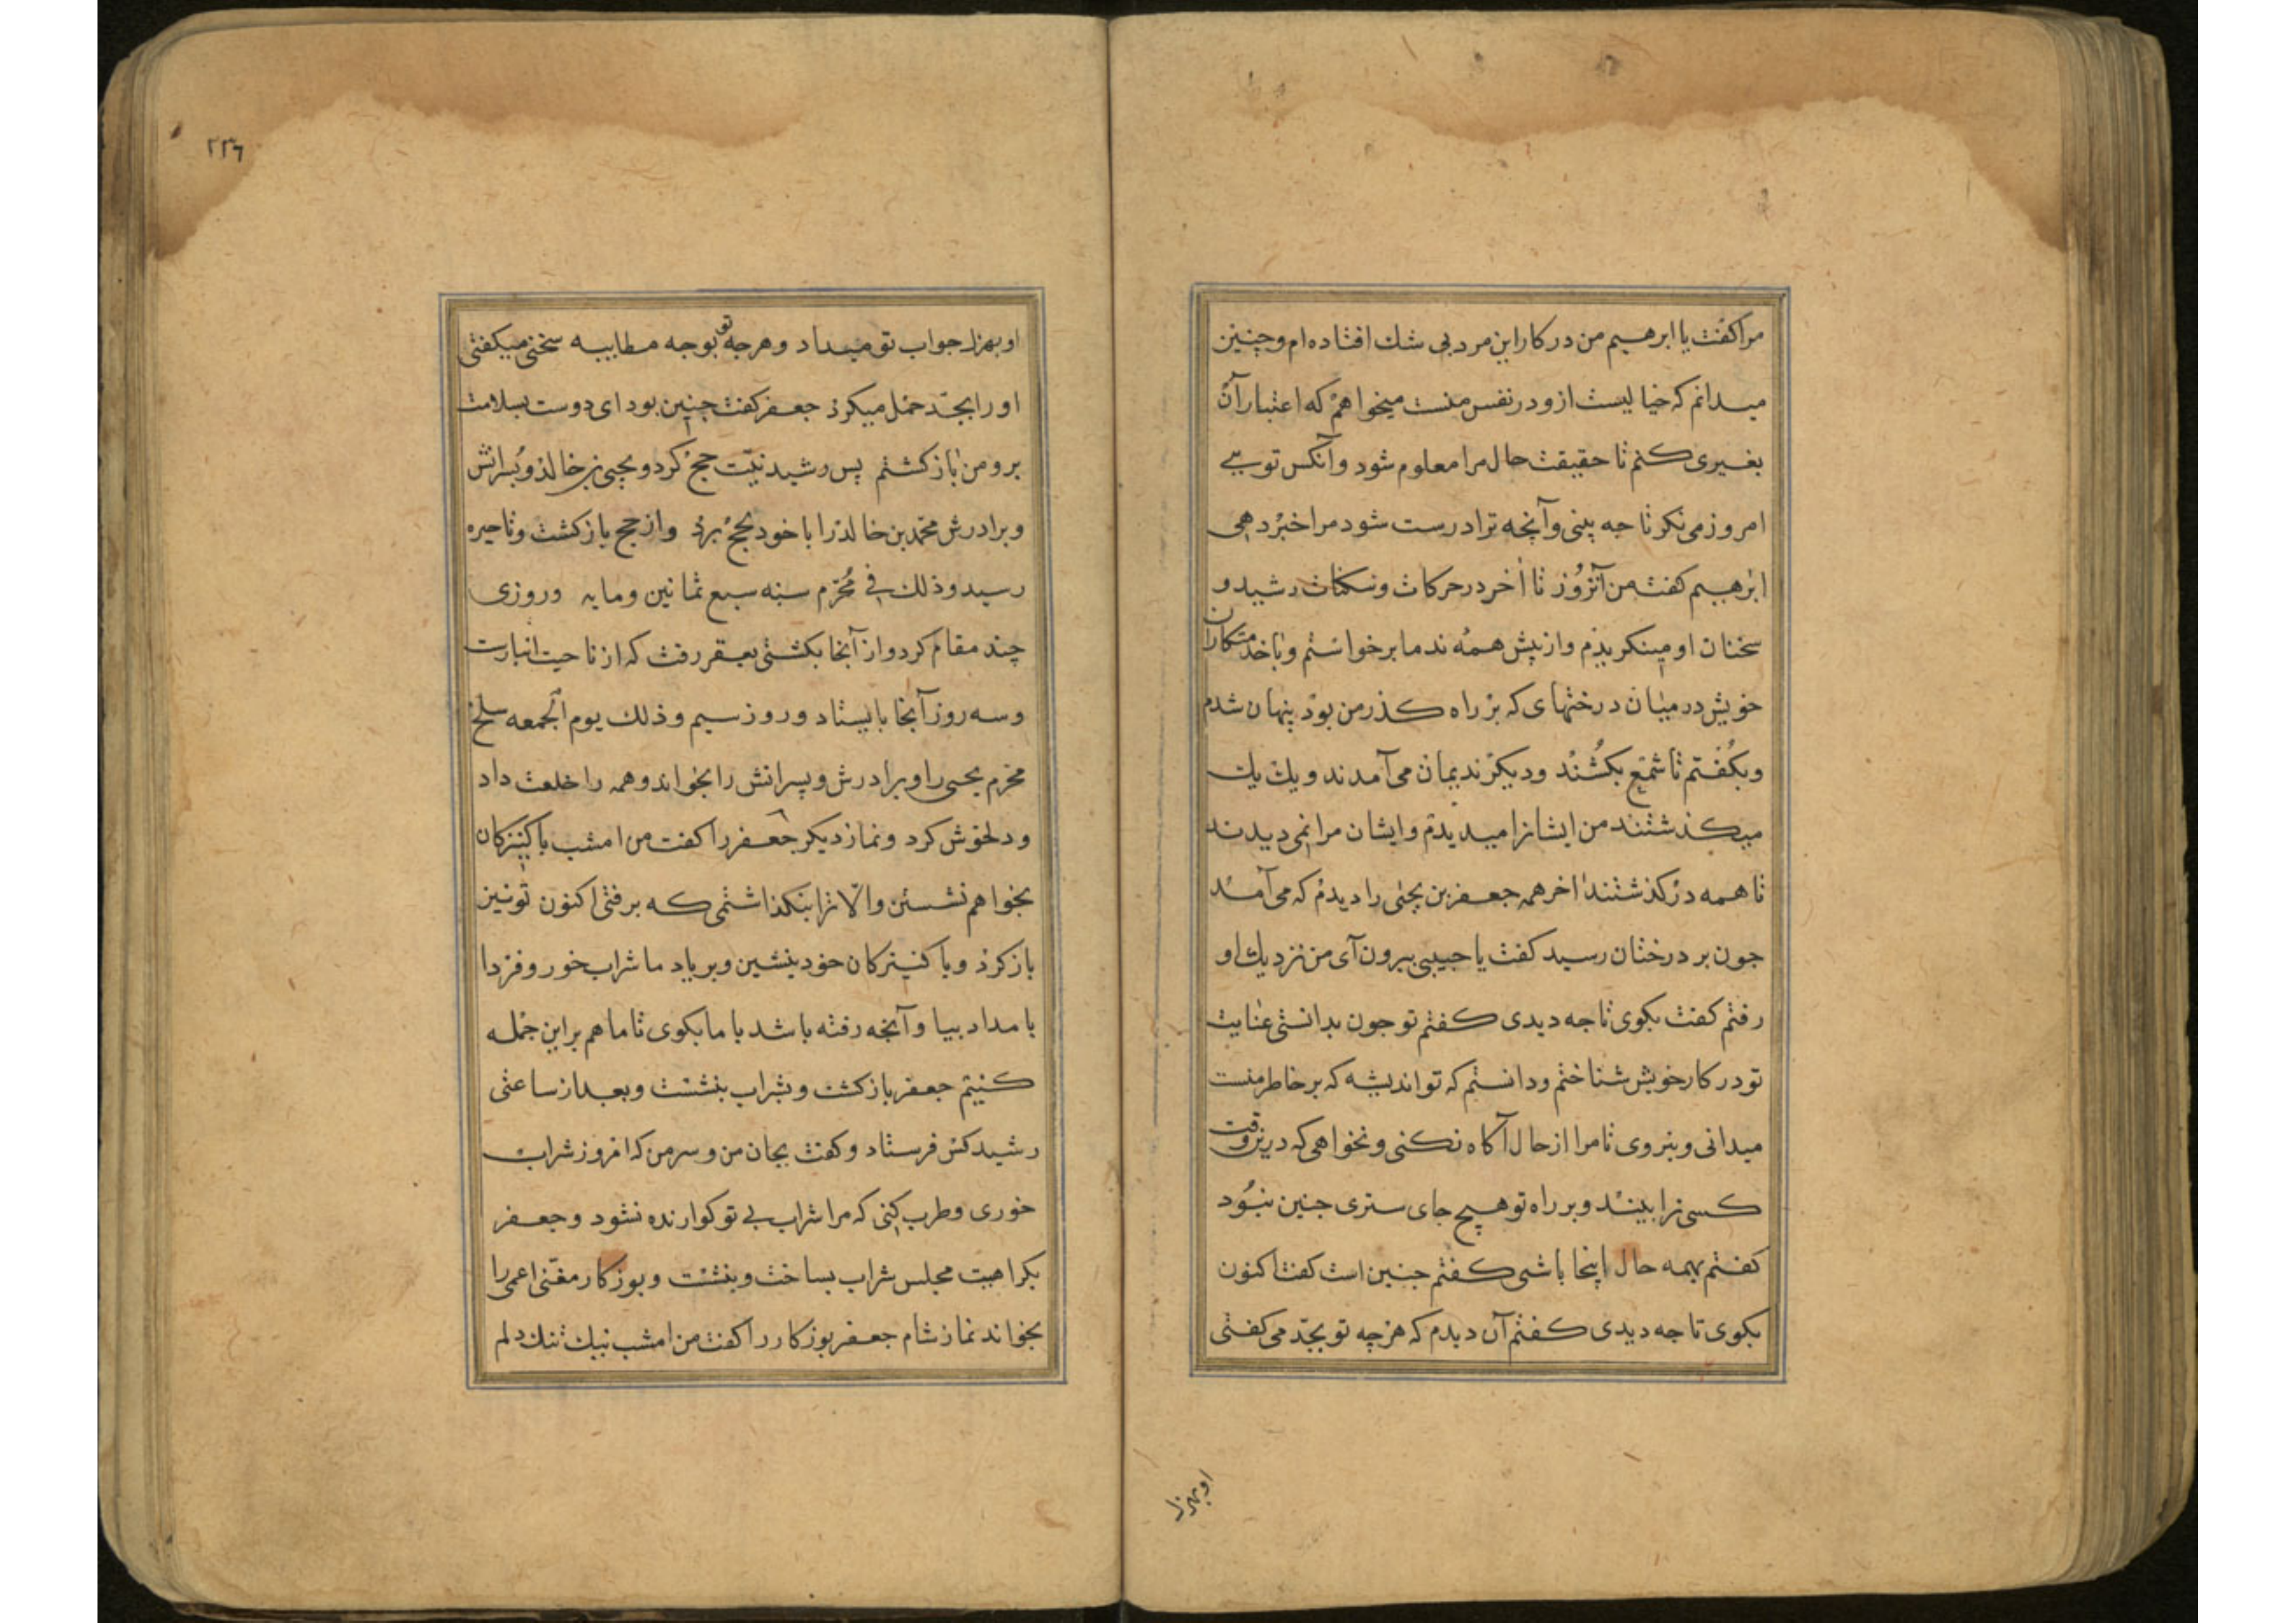 مرا کفت یا ابرهیم من در کار این مرد بی شك افتاده ام وچنین
میدانم که خیالیست ازو در نفس منست میخواهم که اعتبار آن
بغیری کنم تا حقیقت حال مرا معلوم شود وآنکس تویی
امروز می نکر تا جه بینی وآنچه ترا درست شود مرا خبر دهی
ابرهیم کفت من آنروز تا آخر در حرکات وسکنات رشید و
سخنان او مینکریذم واز پیش همه ندما برخواستم وبا خدمتکاران
خویش در میان درختهای که بر راه کذر من بوذ پنهان شدم
وبکفتم تا شمع بکشند ودیکر ندیمان می آمدند ویك یك
میکذشتند من ایشانرا میدیدم وایشان مرا نمی دیدند
تا همه در کذشتند اخر همه جعفر بن یحیی را دیدم که می آمد
جون بر درختان رسید کفت یا حبیبی بیرون آی من نزدیك او
رفتم کفت بکوی تا جه دیدی کفتم تو جون بدانستی عنایت
تو در کار خویش شناختم ودانستم که تو اندیشه که بر خاطر منست
میدانی وبنروی تا مرا از حال آکاه نکنی ونخواهی که درین وقت
کسی ترا بیند وبر راه تو هیچ جای ستری جنین نبود
کفتم بهمه حال اینجا باشی کفتم جنین است کفت اکنون
بکوی تا جه دیدی کفتم آن دیدم که هرچه تو بجد می کفتی
او بهزل
۲۳۶
او بهزل جواب تو میداد وهرجه تو بوجه مطایبه سخنی میکفتی
او را بجد حمل میکرد جعفر کفت جنین بود ای دوست بسلامت
برو من باز کشتم پس رشید نیت حج کرد ویحیی بن خالد وپسرانش
وبرادرش محمد بن خالد را با خود بحج برد واز حج باز کشت وتا حیره
رسید وذلك فی محرم سنه سبع ثمانین ومایه وروزی
چند مقام کرد واز آنجا بکشتی بعقر رفت که از ناحیت انبارست
وسه روز آنجا بایستاد وروز سیم وذلك یوم الجمعه سلخ
محرم یحیی را وبرادرش وپسرانش را بخواند وهمه را خلعت داد
ودلخوش کرد ونماز دیکر جعفر را کفت من امشب با کنیزکان
بخواهم نشستن والا ترا بنکذاشتمی که برفتی اکنون تو نیز
باز کرد وبا کنیزکان خود بنشین وبر یاد ما شراب خور وفردا
بامداد بیا وآنچه رفته باشد با ما بکوی تا ما هم بر این جمله
کنیم جعفر باز کشت وبشراب بنشست وبعد از ساعتی
رشید کس فرستاد وکفت بجان من وسر من که امروز شراب
خوری وطرب کنی که مرا شراب بی تو کوارنده نشود وجعفر
بکراهیت مجلس شراب بساخت وبنشست وبوزکار مغنی اعمی را
بخواند نماز شام جعفر بوزکار را کفت من امشب نیك تنك دلم